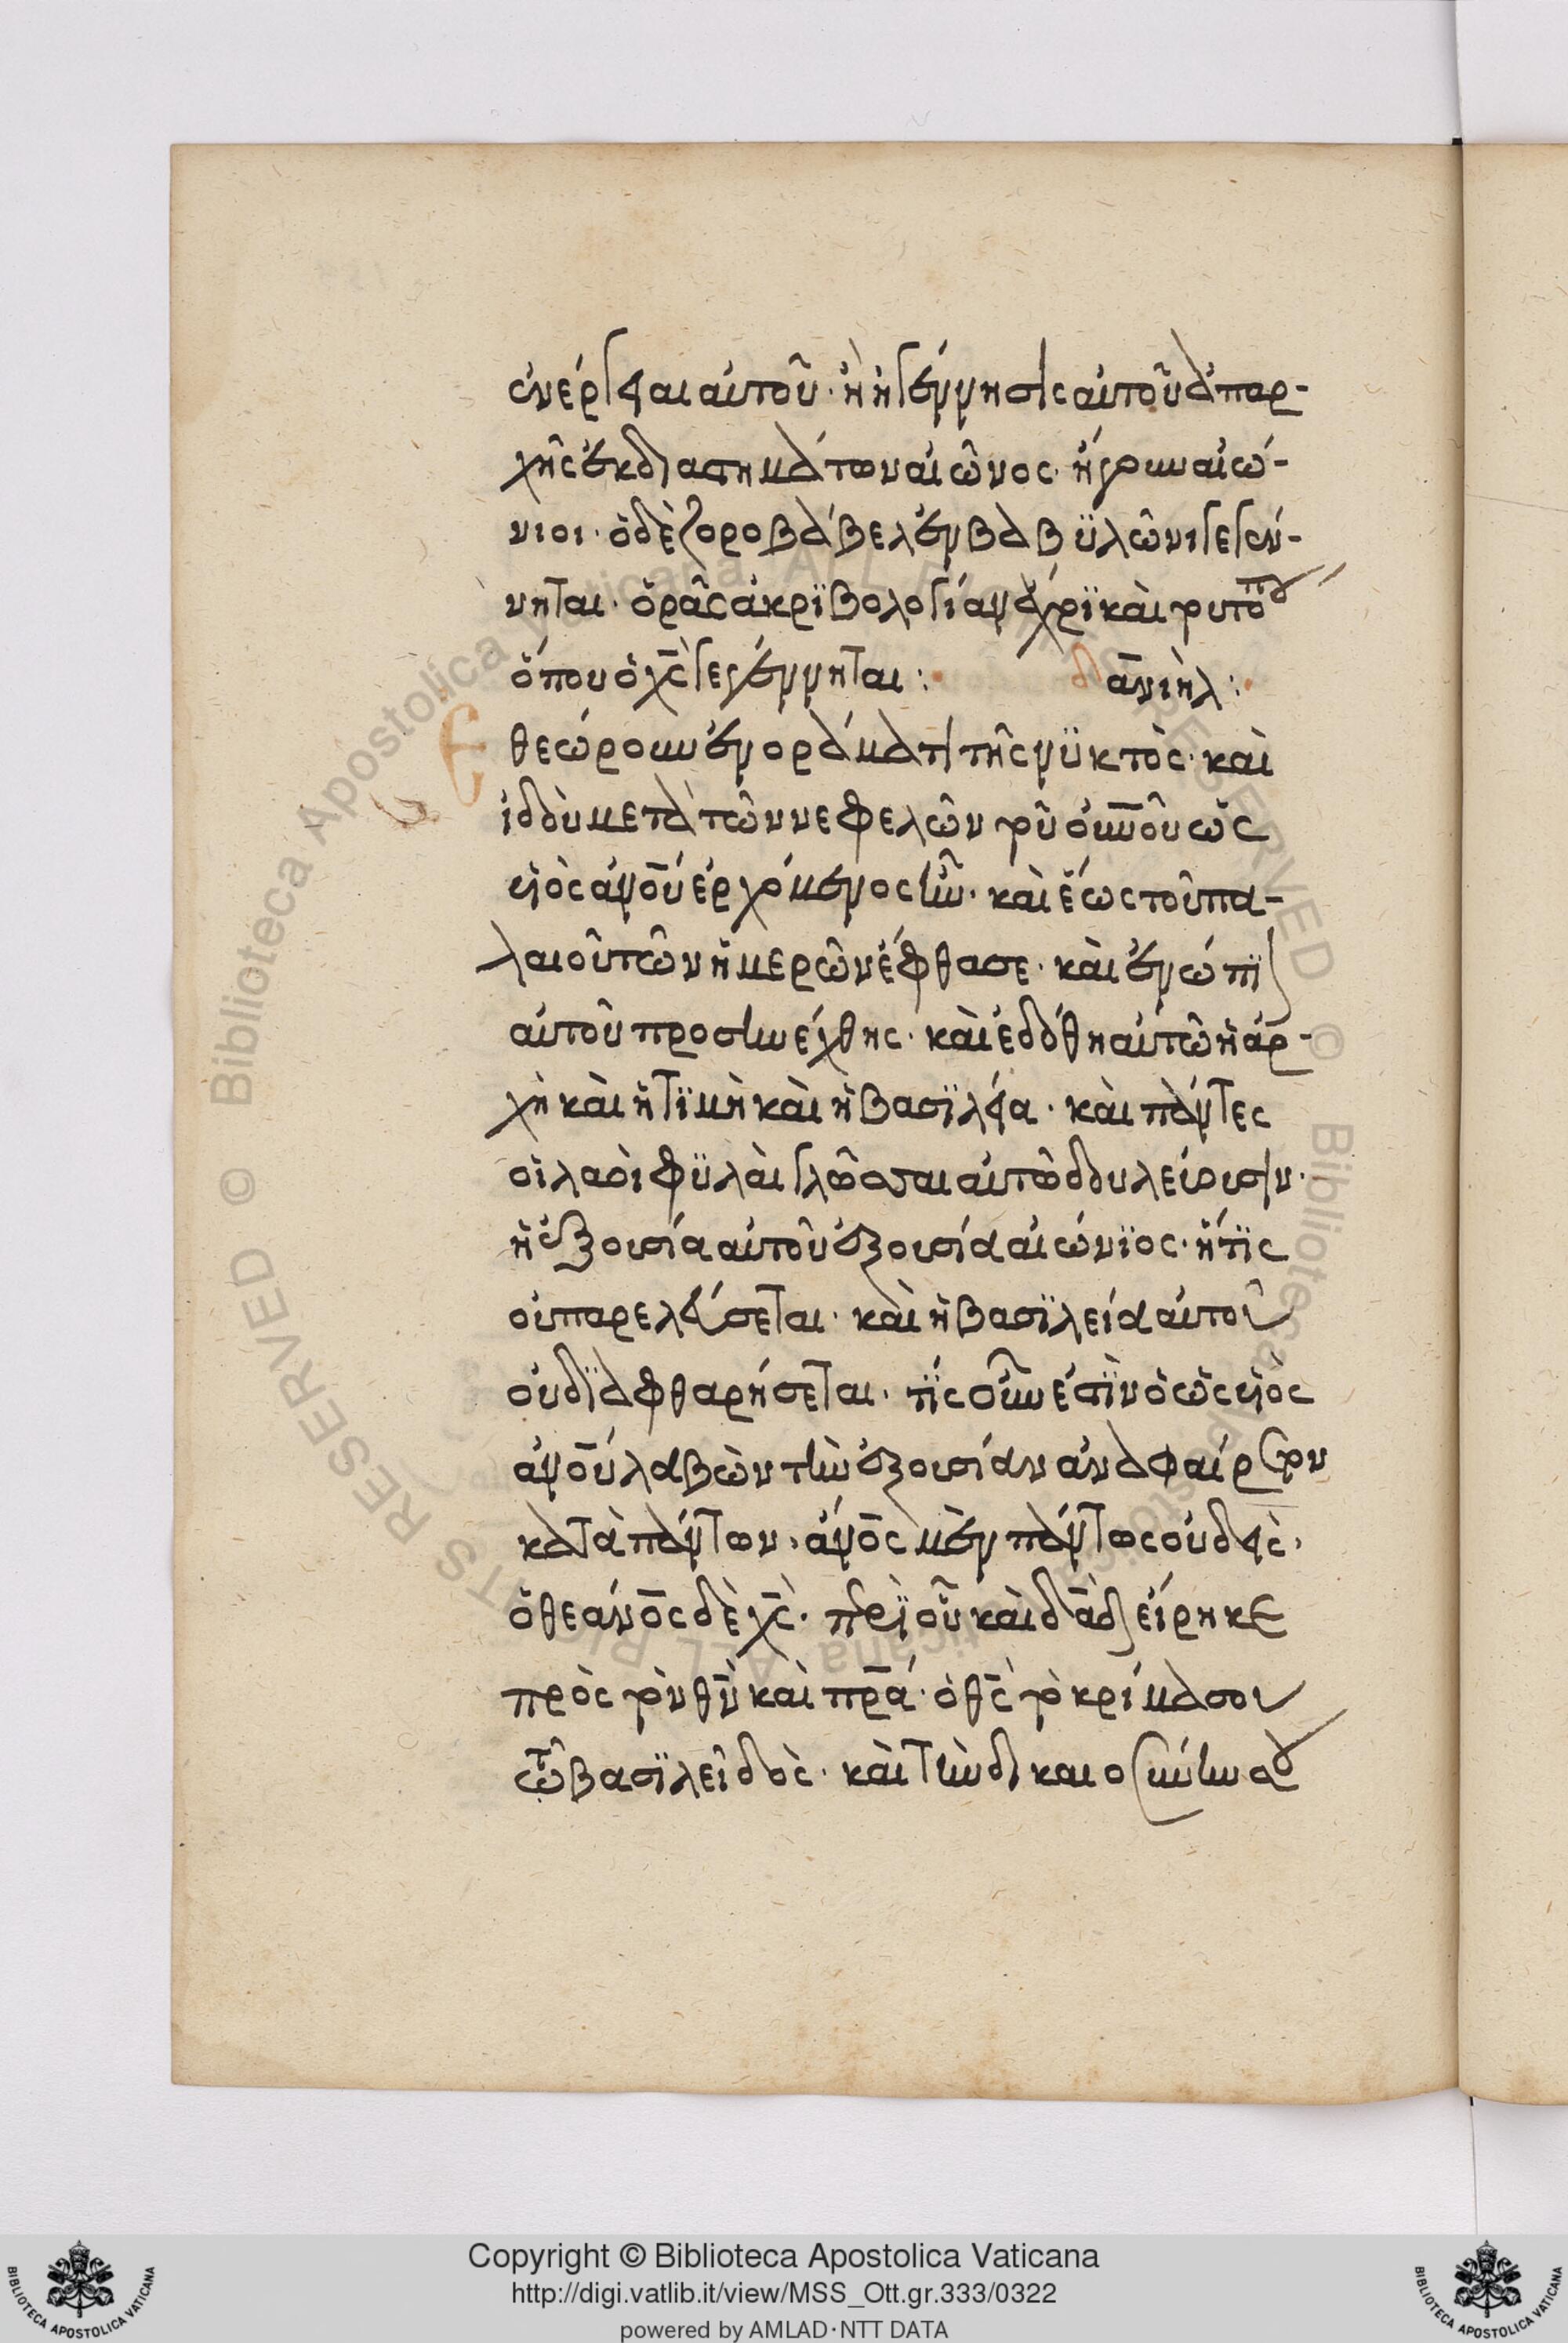 ἐνέργειαι αὐτοῦ· ἢ ἡ γέννησις αὐτοῦ ἀπαρ-
χῆς ἐκ διαστημάτων αἰῶνος· ἤγουν αἰώ-
νιοι· ὁ δὲ ζοροβάβελ ἐν βαβϋλῶνι γεγέν-
νηται· ὁρᾶς ἀκριβολογίαν ἄχρι καὶ τοῦ τόπου
ὅπου ὁ χς̅ γεγέννηται:· δανιήλ:·
Ἐθεώρουν ἐν ὁράματι τῆς νϋκτὸς· καὶ
ἰδοὺ μετὰ τῶν νεφελῶν τοῦ οὐνοῦ ὡς
υἱὸς ἀνοῦ ἐρχόμενος ἦν· καὶ ἕως τοῦ πα-
λαιοῦ τῶν ἡμερῶν ἔφθασε· καὶ ἐνώπϊον
αὐτοῦ προσηνέχθης· καὶ ἐδόθη αὐτῶ ἡ ἀρ-
χὴ καὶ ἡ τϊμὴ καὶ ἡ βασϊλεία· καὶ πάντες
οἱ λαοὶ φϋλαὶ γλῶσσαι αὐτῶ δουλεύουσιν·
ἡ ἐξουσία αὐτοῦ ἐξουσία αἰώνϊος· ἥτϊς
οὐ παρελεύσεται· καὶ ἡ βασϊλεία αὐτοῦ
οὐ δϊαφθαρήσεται· τίς οὖν ἐστὶν ὁ ὡς υἱὸς
ἀνοῦ λαβὼν τὴν ἐξουσίαν ἀναφαίρετον
κατὰ πάντων· ἄνος μὲν πάντως οὐδεὶς·
ὁ θεάνος δὲ χς̅· πρὶ οὗ καὶ δᾱδ εἴρηκε
πρὸς τὸν θν̅ καὶ πρ̅α· ὁ θς̅ τὸ κρίμα σου
τῶ βασϊλεῖ δὸς· καὶ τὴν δικαιοσύνην σου